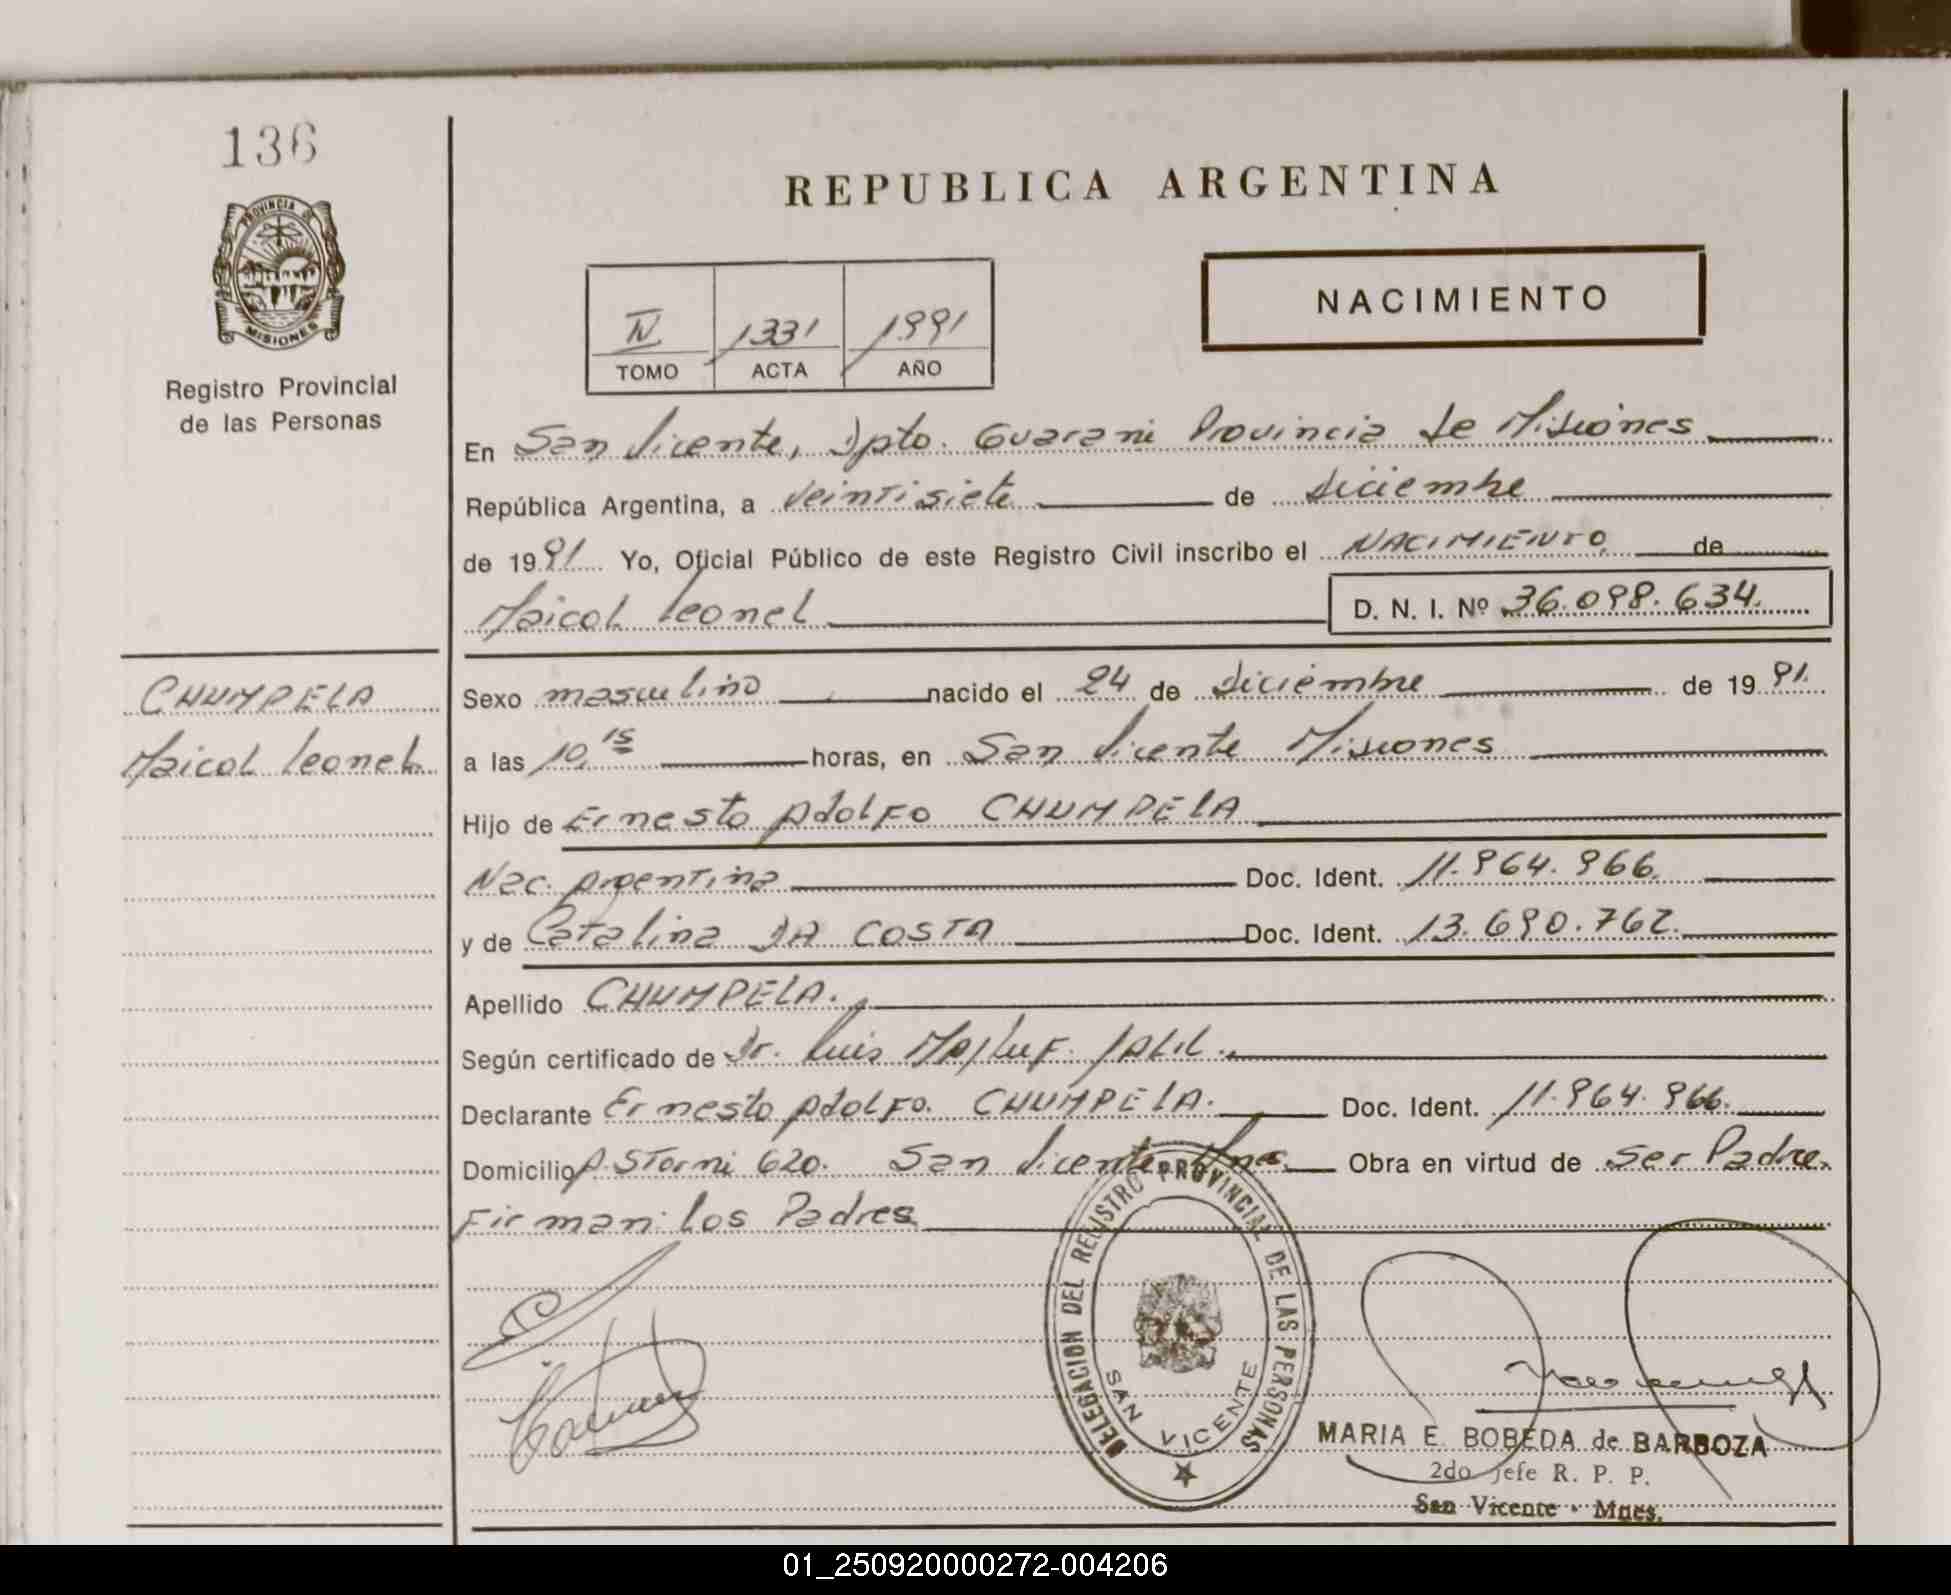 136
PROVINCIA DE
MISIONES
Registro Provincial
de las Personas
REPUBLICA ARGENTINA
NACIMIENTO
IV 1331 1991
TOMO ACTA AÑO
En San Vicente, Dpto. Guarani Provincia de Misiones
República Argentina, a veintisiete de diciembre
de 1991 Yo, Oficial Público de este Registro Civil inscribo el NACIMIENTO de
Maicol Leonel D. N. I. Nº 36.098.634.
CHUMPELA
Maicol Leonel
Sexo masculino nacido el 24 de diciembre de 1991.
a las 10,15 horas, en San Vicente Misiones
Hijo de Ernesto Adolfo CHUMPELA
Nac. Argentina Doc. Ident. 11.964.966.
y de Catalina DA COSTA Doc. Ident. 13.690.762.
Apellido CHUMPELA.
Según certificado de Dr. Luis Majluf
Declarante Ernesto Adolfo. CHUMPELA. Doc. Ident. 11.964.966.
Domicilio A. Storni 620. San Vicente Mnes. Obra en virtud de ser Padre.
Firman: los Padres
DELEGACION DEL REGISTRO PROVINCIAL DE LAS PERSONAS
SAN VICENTE
MARIA E. BOBEDA de BARBOZA
2do Jefe R. P. P.
San Vicente - Mnes.
01_250920000272-004206